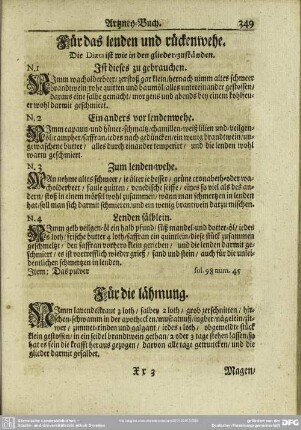 Artzney-Buch. 349
Für das lenden und rückenwehe.
Die Diæta ist wie in den glieder-zuständen.
N. 1 Ist dieses zu gebrauchen.
NImm wacholderbeer/ zerstoß gar klein/ hernach nimm altes schmeer
brandtwein rohe quitten und baumöl alles untereinander gestossen/
darmit eine salbe gemacht/ morgens und abends bey einem kohlfeu-
er wohl darmit geschmiert.
N. 2 Ein anders vor lendenwehe.
NImm capaun- und hüner-schmaltz chamillen- weiß lilien und veilgen-
öl
alles durch einander temperiert/ und die lenden wohl
warm geschmiert.
N. 3 Zum lenden-wehe.
MAn nehme altes schmeer/ je älter je besser/ grüne cronabeth- oder wa-
cholderbeer/ faule quitten/ venedische seiffe/ eines so viel als des an-
dern/ stoß in einem mörsel wohl zusammen/ wann man schmertzen in lenden
hat/ soll man sich darmit schmieren/ und ein wenig brantwein darzu mischen.
N. 4 Lenden sälblein.
NImm gelb veilgen-öl ein halb pfund/ süß mandel und dotter-öl/ jedes
2 loth/ frische butter 4 loth/ saffran ein quintlein/ diese stück zusammen
geschmeltzt/ den saffran vorhero klein gerieben/ und die lenden darmit ge-
schmiert/ es ist vortrefflich wieder grieß/ sand und stein/ auch für die unlei-
dentlichen schmertzen in lenden.
Item: Das pulver fol. 98 num. 45
Für die lähmung.
NImm lavendelkraut 3 loth/ salbey 2 loth/ grob zerschnitten/ hir-
schen-schramm in der apothecken/ muscatnuß/ ingber nägelein zit-
wer/ zimmet-rinden und galgant/ jedes 1 loth/ obgemeldte stück
klein gestossen/ in ein seidel brandtwein gethan/ 2 oder 3 tage stehen lassen/ so
hat es sein die krafft heraus gezogen/ darvon alle tage getruncken/ und die
glieder darmit gesalbet.
X x 3 Magen/